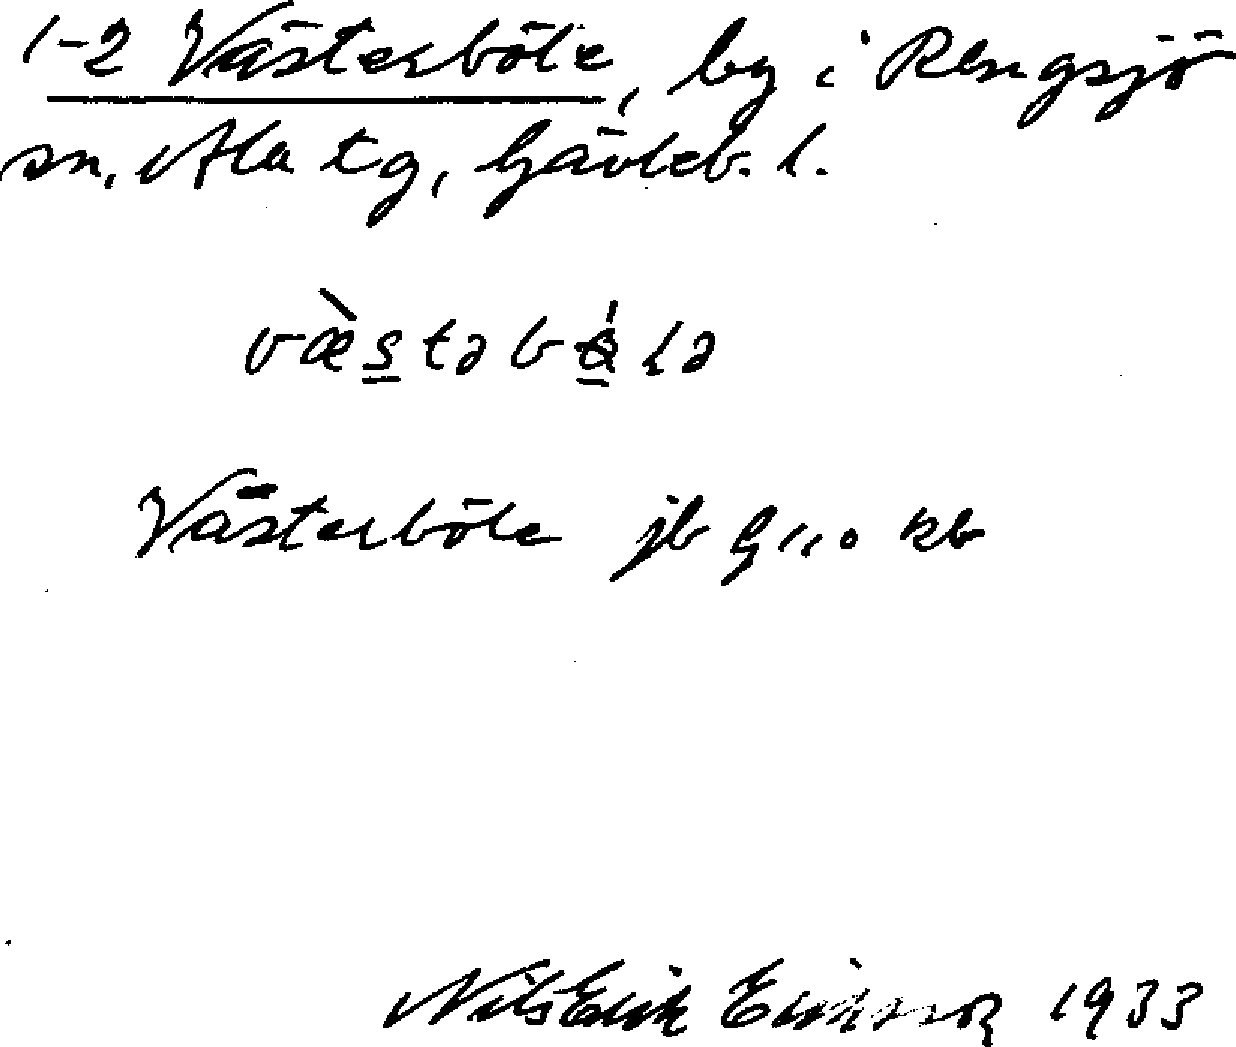 1-2 Västerböle, by i Rengsjö
sn, Ala tg, Gävleb. l.
væ̀stəb lə
Västerböle jb kb
Nils Erik Eriksson 1933